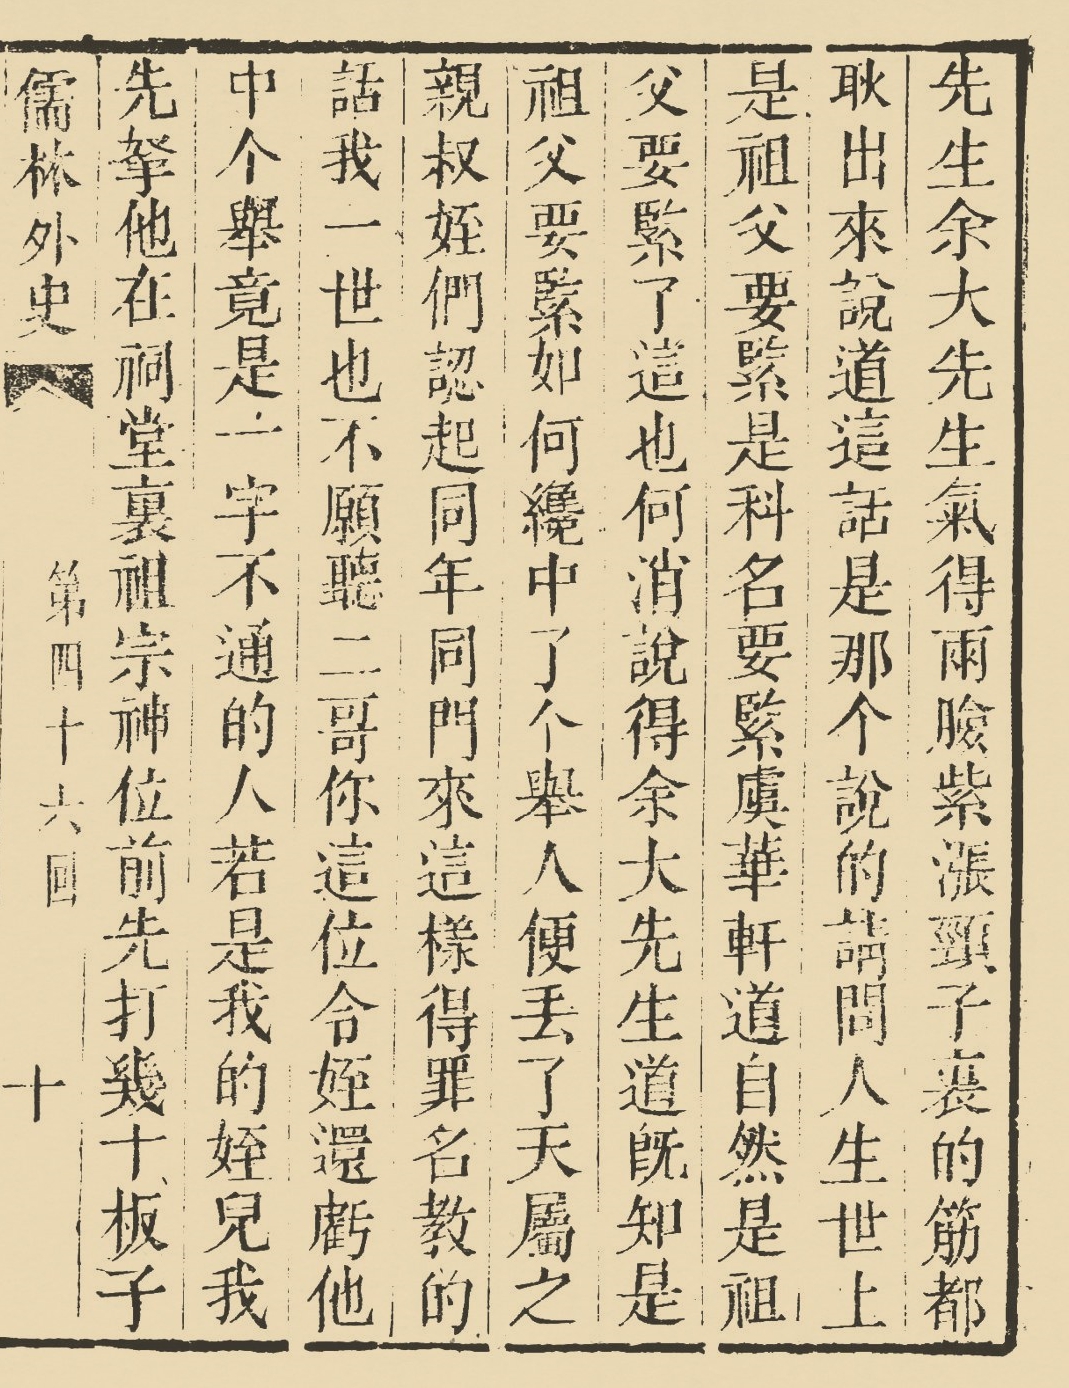 先生余大先生氣得兩臉紫漲頸子裏的筋都
耿出來說道這話是那个說的請問人生世上
是祖父要緊是科名要緊虞華軒道自然是祖
父要緊了這也何消說得余大先生道既知是
祖父要緊如何纔中了个舉人便丟了天屬之
親叔姪們認起同年同門來這樣得罪名教的
話我一世也不願聽二哥你這位令姪還虧他
中个舉竟是一字不通的人若是我的姪兒我
先拏他在祠堂裏祖宗神位前先打幾十板子
儒林外史
第四十六回
十